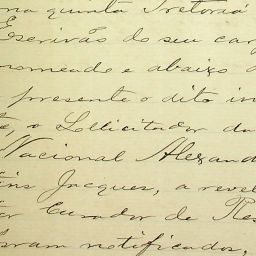 na quinta Pretoria
Escrivão do seu car
nomeado e abaixo a
presente o dito in
te, o Sollicitador da
Nacional Alexand
tins Jacques, a revel
tor Curador de Res
foram notificados,